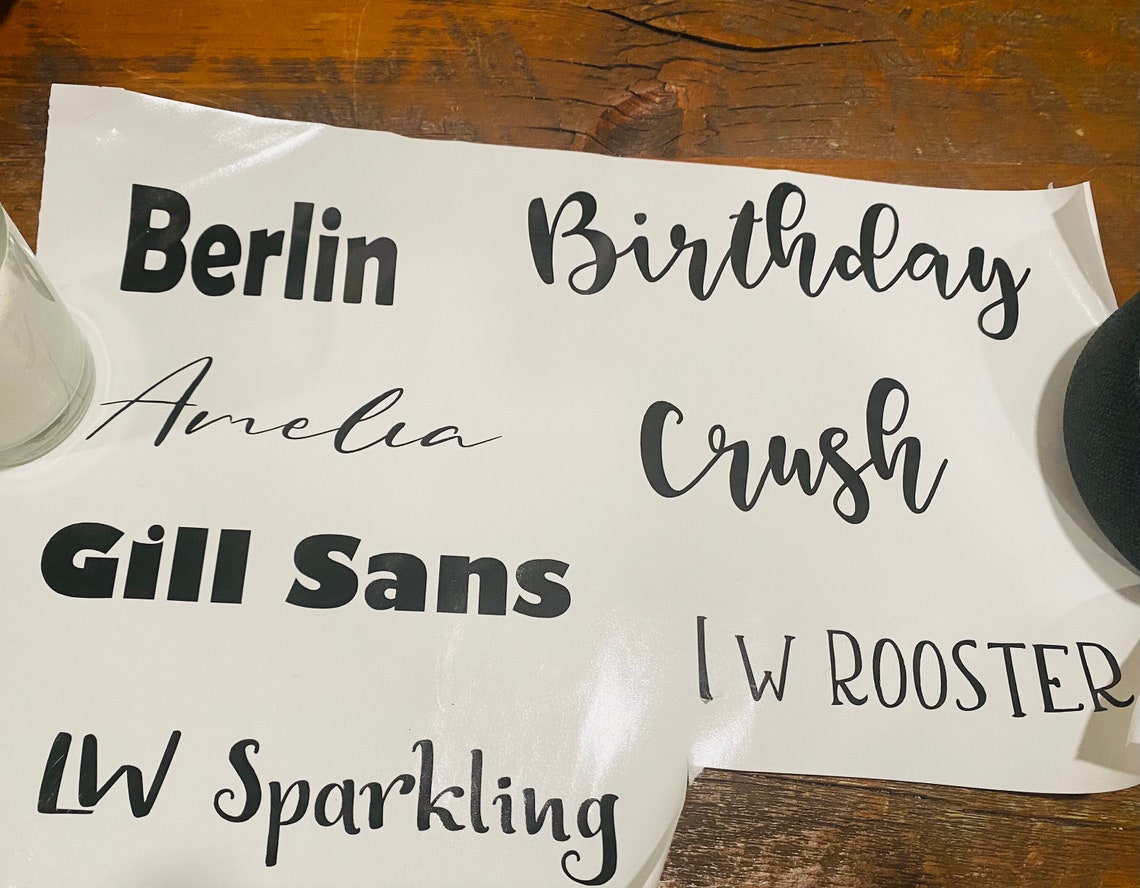 Berlin
Birthday
Amelia
Crush
Gill Sans
I W ROOSTER
LW Sparkling